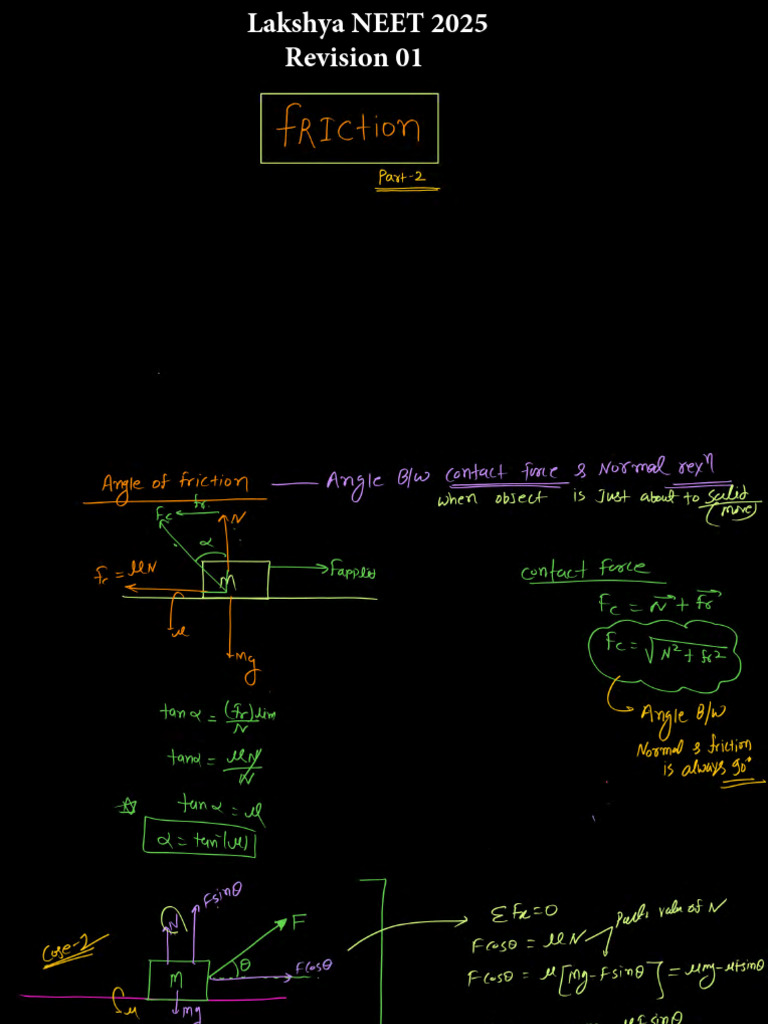 Lakshya NEET 2025
Revision 01
fRICTION
Part-2
Angle of friction —— Angle B/w contact force & Normal rexⁿ
when object is Just about to
(move)
fr
Fc
N
α
fr = μN
M
Fapplied
μ
Mg
contact force
Fc = N⃗ + fr⃗
Fc = √N² + fr²
Angle B/w
Normal & friction
is always 90°
tanα = (fr)lim/N
tanα = μN/N
tanα = μ
α = tan⁻¹(μ)
Case-2
N
Fsinθ
F
θ
Fcosθ
M
μ
Mg
ΣFx = 0
value of N
Fcosθ = μN
Fcosθ = μ[Mg-Fsinθ] = μmg-μFsinθ
μFsinθ